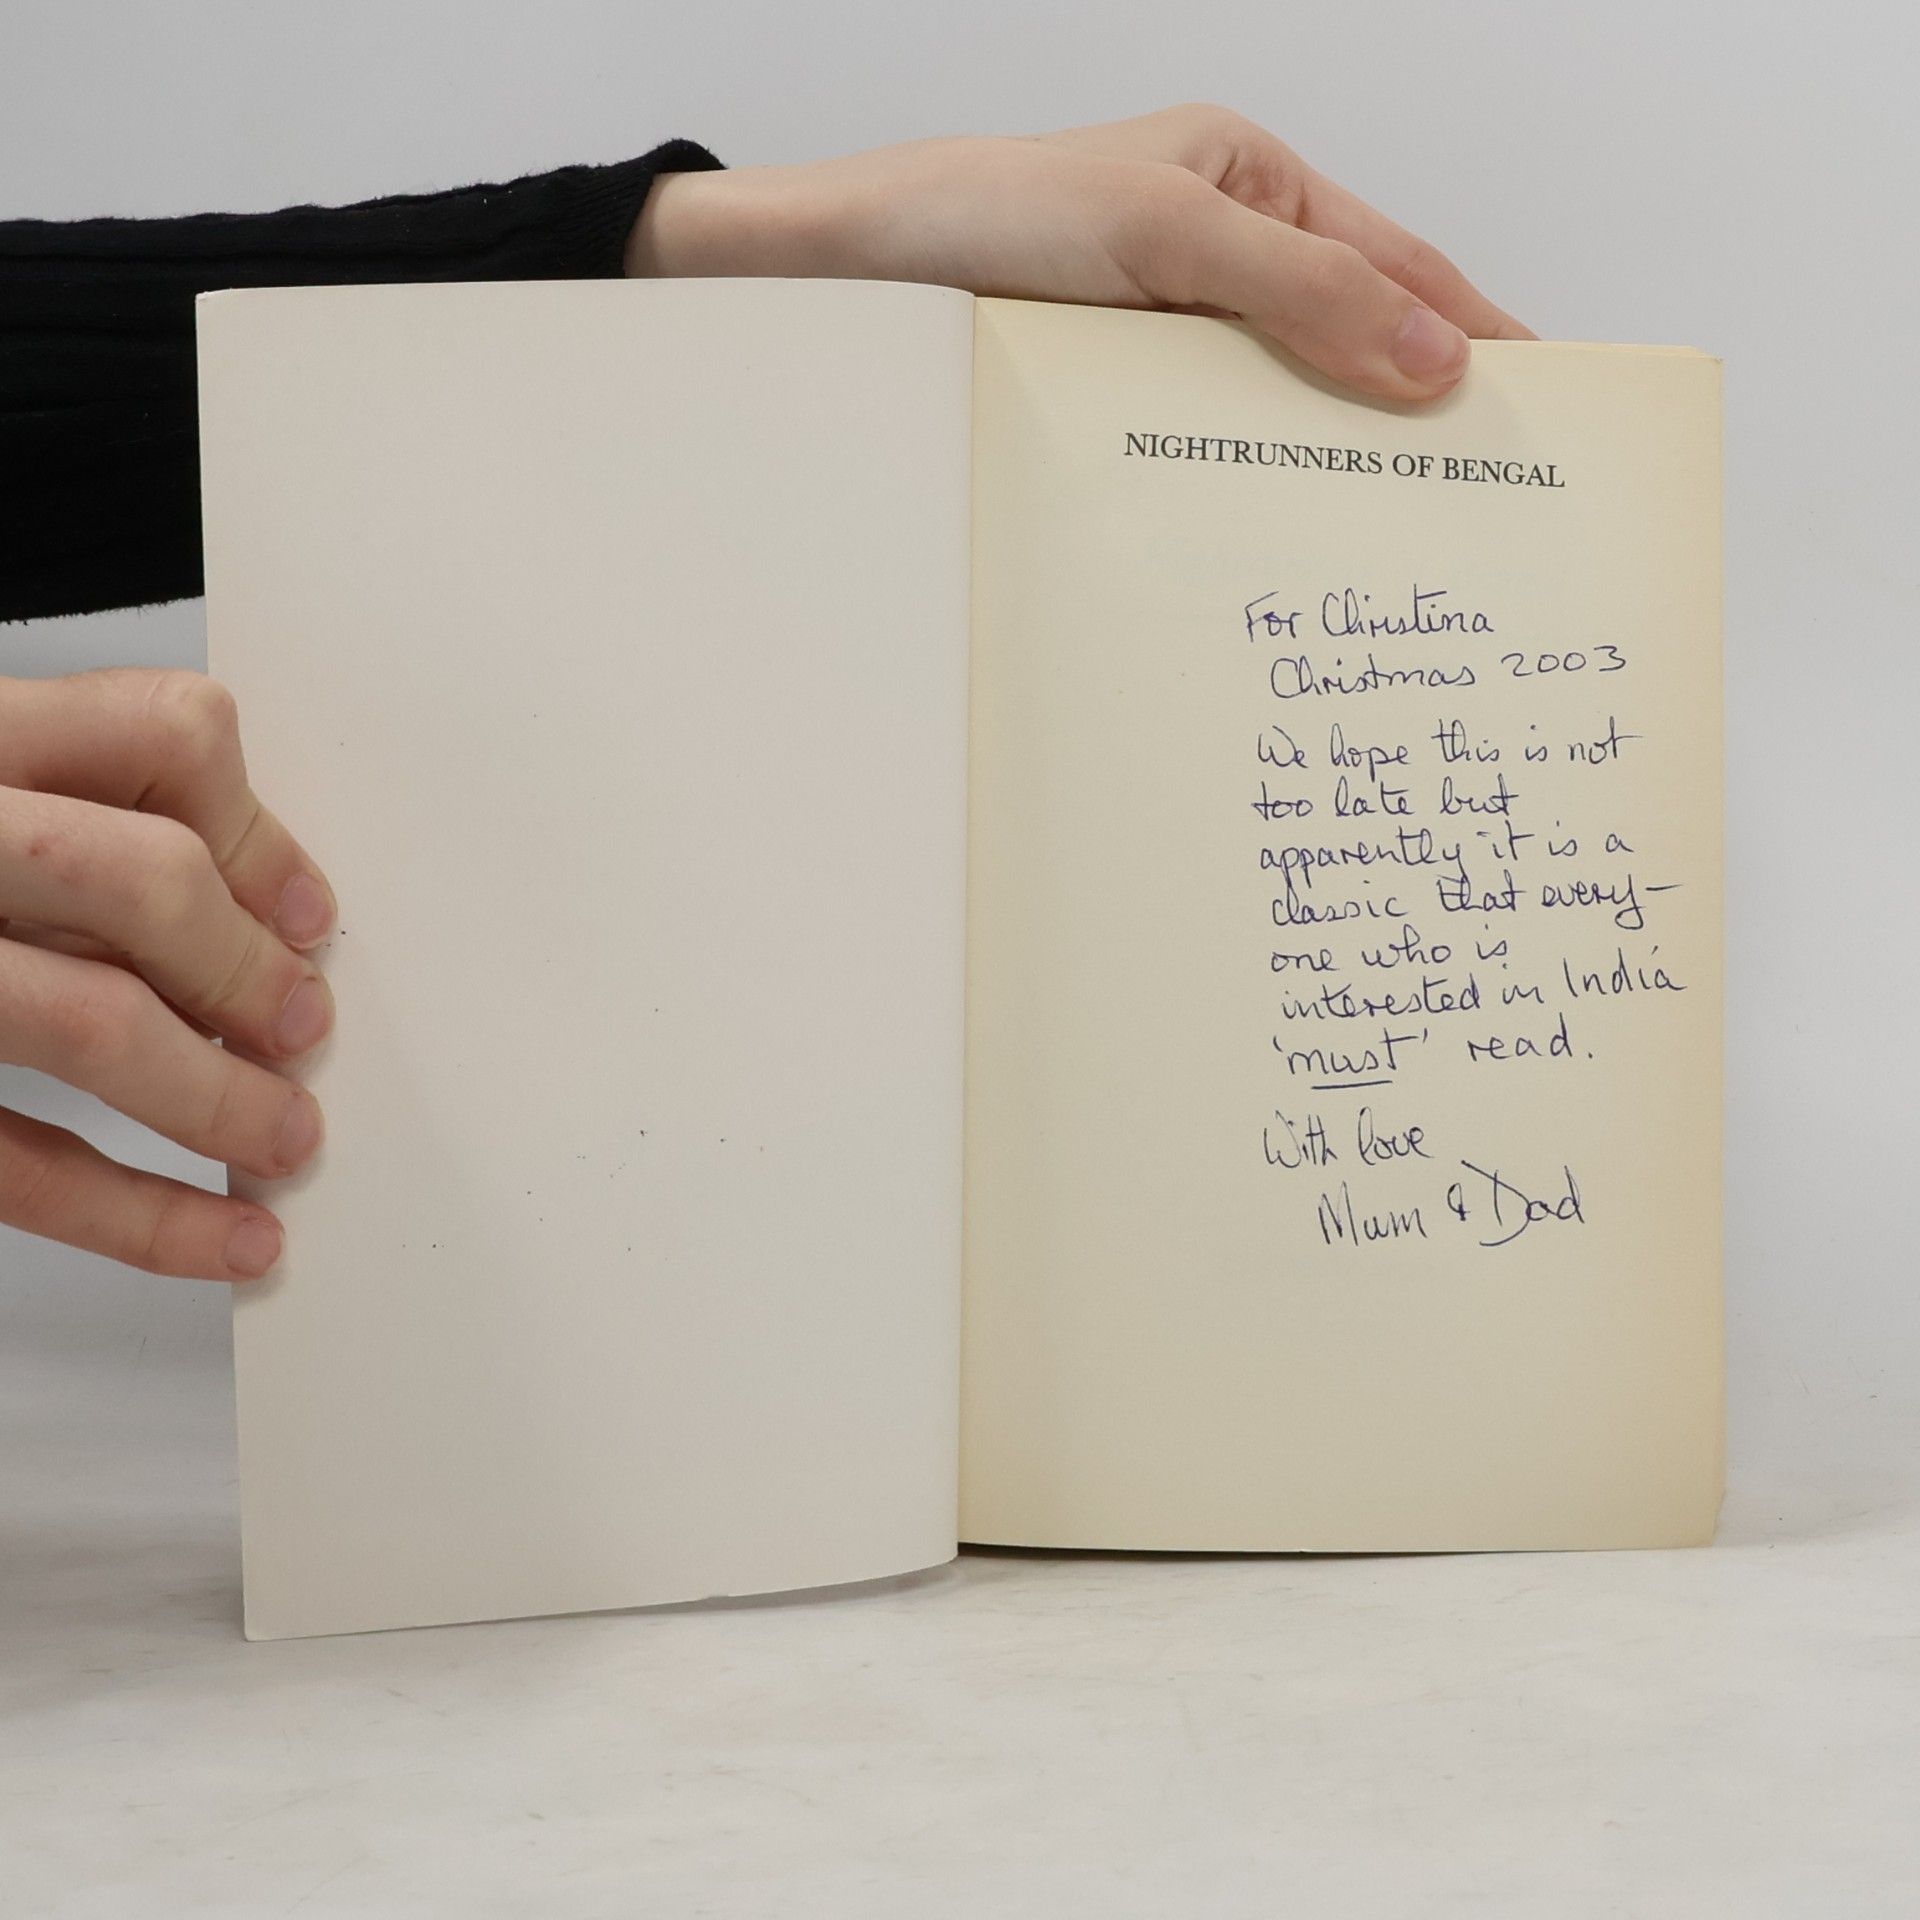 NIGHTRUNNERS OF BENGAL
For Christina
Christmas 2003
We hope this is not
too late but
apparently it is a
classic that every-
one who is
interested in India
'must' read.
With love
Mum & Dad